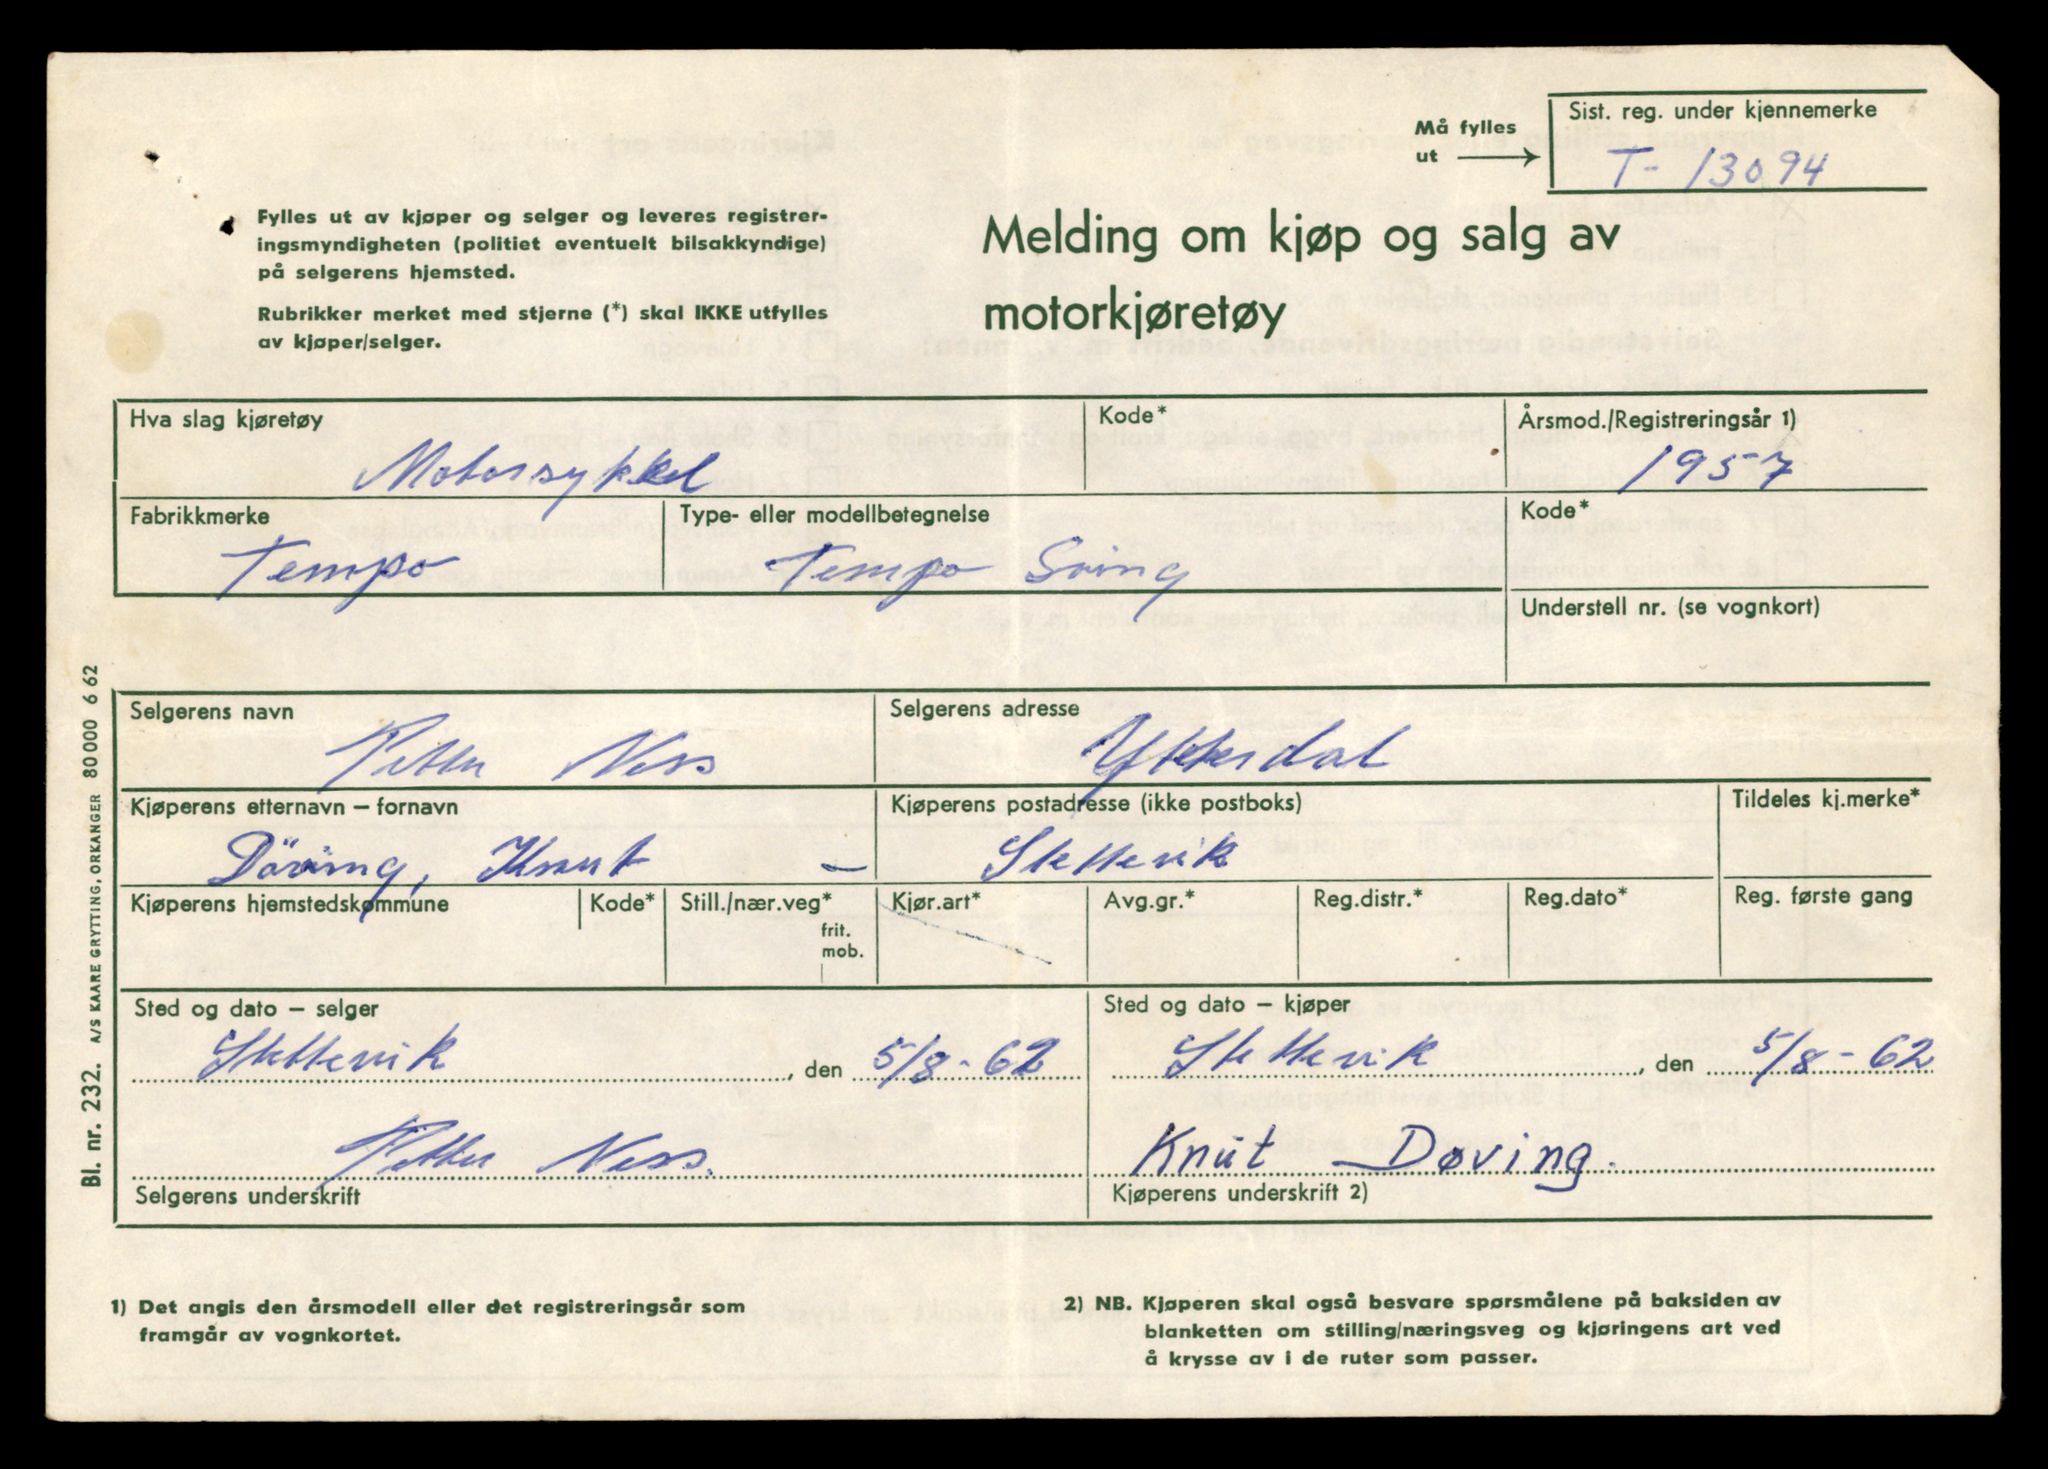 Må fylles
ut
Sist. reg. under kjennemerke
T- 13094
Fylles ut av kjøper og selger og leveres registrer-
ingsmyndigheten (politiet eventuelt bilsakkyndige)
på selgerens hjemsted.
Rubrikker merket med stjerne (*) skal IKKE utfylles
av kjøper/selger.
Melding om kjøp og salg av
motorkjøretøy
Hva slag kjøretøy
Motorsykkel
Kode*
Årsmod./Registreringsår 1)
1957
Fabrikkmerke
Tempo
Type- eller modellbetegnelse
Tempo Sving
Kode*
Understell nr. (se vognkort)
Selgerens navn
Petter Ness
Selgerens adresse
Kjøperens etternavn – fornavn
Döving, Knut –
Kjøperens postadresse (ikke postboks)
Stettevik
Tildeles kj.merke*
Kjøperens hjemstedskommune
Kode*
Still./nær.veg*
frit.
mob.
Kjør.art*
Avg.gr.*
Reg.distr.*
Reg.dato*
Reg. første gang
Sted og dato – selger
Stettevik, den 5/8-62
Sted og dato – kjøper
Stettevik, den 5/8-62
Petter Ness.
Selgerens underskrift
Knut Døving.
Kjøperens underskrift 2)
1) Det angis den årsmodell eller det registreringsår som
framgår av vognkortet.
2) NB. Kjøperen skal også besvare spørsmålene på baksiden av
blanketten om stilling/næringsveg og kjøringens art ved
å krysse av i de ruter som passer.
Bl. nr. 232. A/S KAARE GRYTTING, ORKANGER 80000 6 62